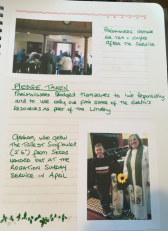 Parishioners gather
for tea & coffee
after the service
PLEDGE TAKEN
Parishioners pledged themselves to live responsibly
and to use only our fair share of the Earth's
resources as part of the Liturgy
who grew
the tallest sunflower
(2'6") from seeds
handed out at the
Rogation Sunday
service in April